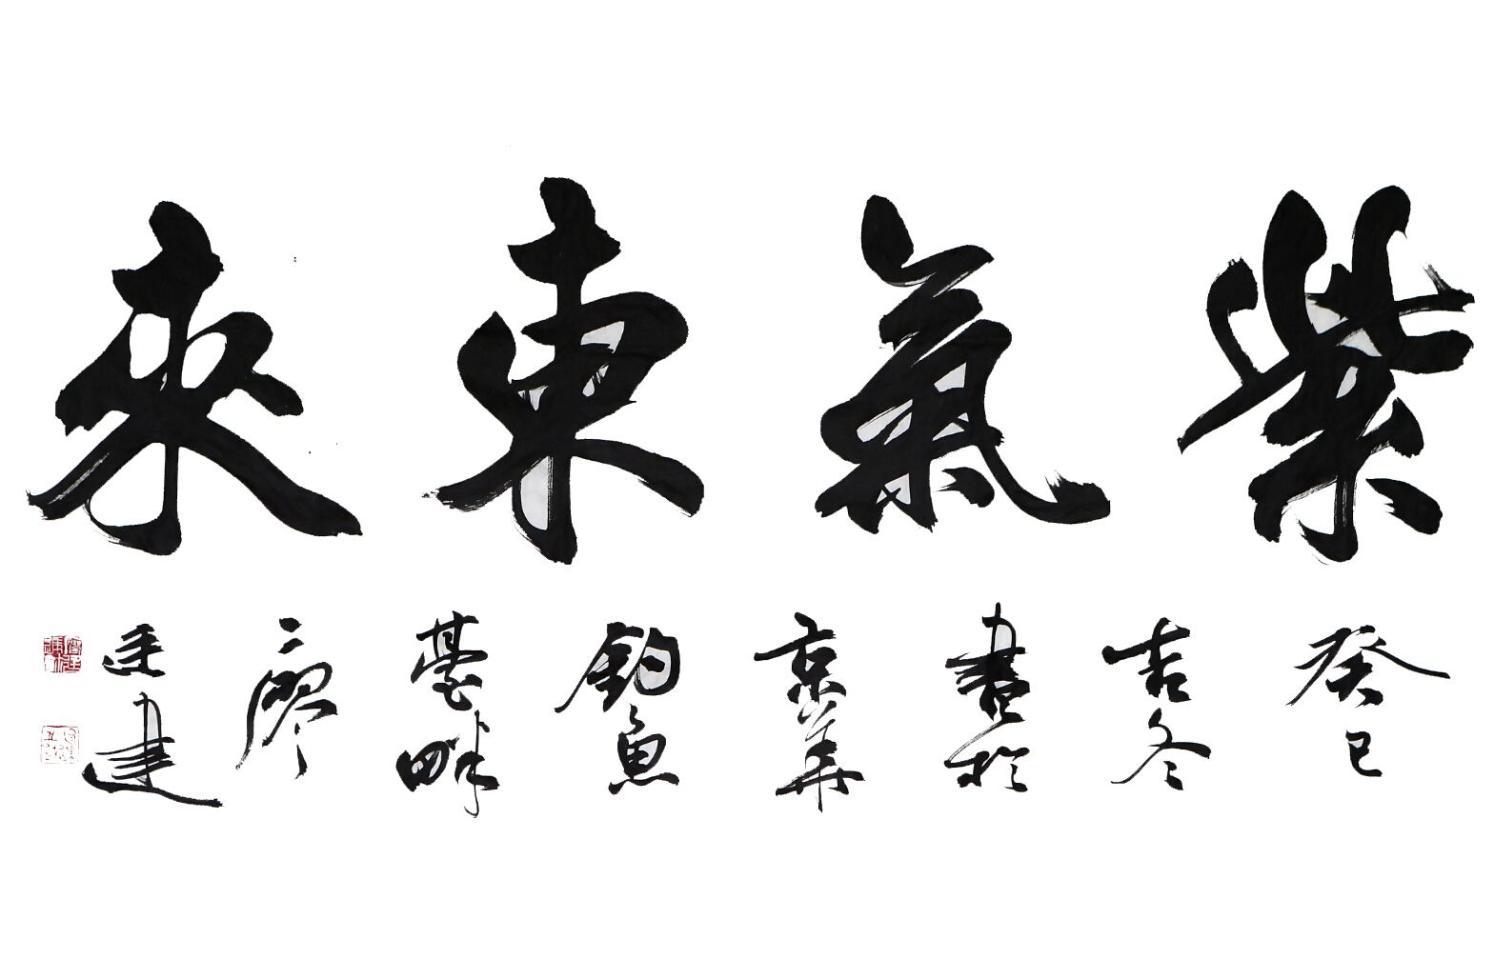 紫氣東來
癸巳
吉冬
書於
京華
釣魚
臺畔
廖
廷建